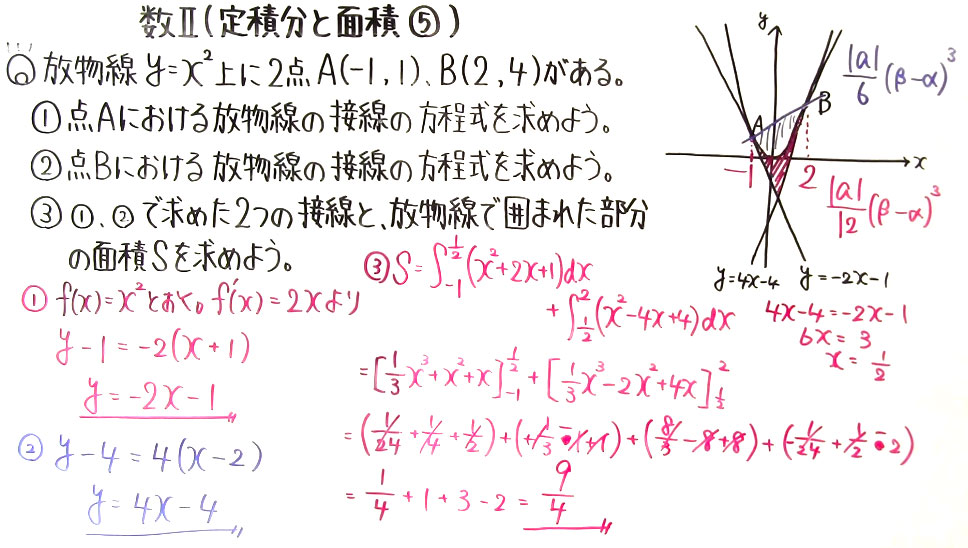 数Ⅱ(定積分と面積⑤)
◎ 放物線 y=x²上に2点A(-1,1)、B(2,4)がある。
①点Aにおける放物線の接線の方程式を求めよう。
②点Bにおける放物線の接線の方程式を求めよう。
③①、②で求めた2つの接線と、放物線で囲まれた部分
の面積Sを求めよう。
y
|a|/6 (β-α)³
A
B
x
-1
2
|a|/12 (β-α)³
y=4x-4
y=-2x-1
4x-4=-2x-1
6x=3
x=1/2
① f(x)=x²とおく。f'(x)=2xより
y-1=-2(x+1)
y=-2x-1
② y-4=4(x-2)
y=4x-4
③ S=∫_{-1}^{1/2}(x²+2x+1)dx
+∫_{1/2}^{2}(x²-4x+4)dx
=[1/3x³+x²+x]_{-1}^{1/2}+[1/3x³-2x²+4x]_{1/2}^{2}
=(1/24+1/4+1/2)+(+1/3-1+1)+(8/3-8+8)+(-1/24+1/2-2)
=1/4+1+3-2=9/4